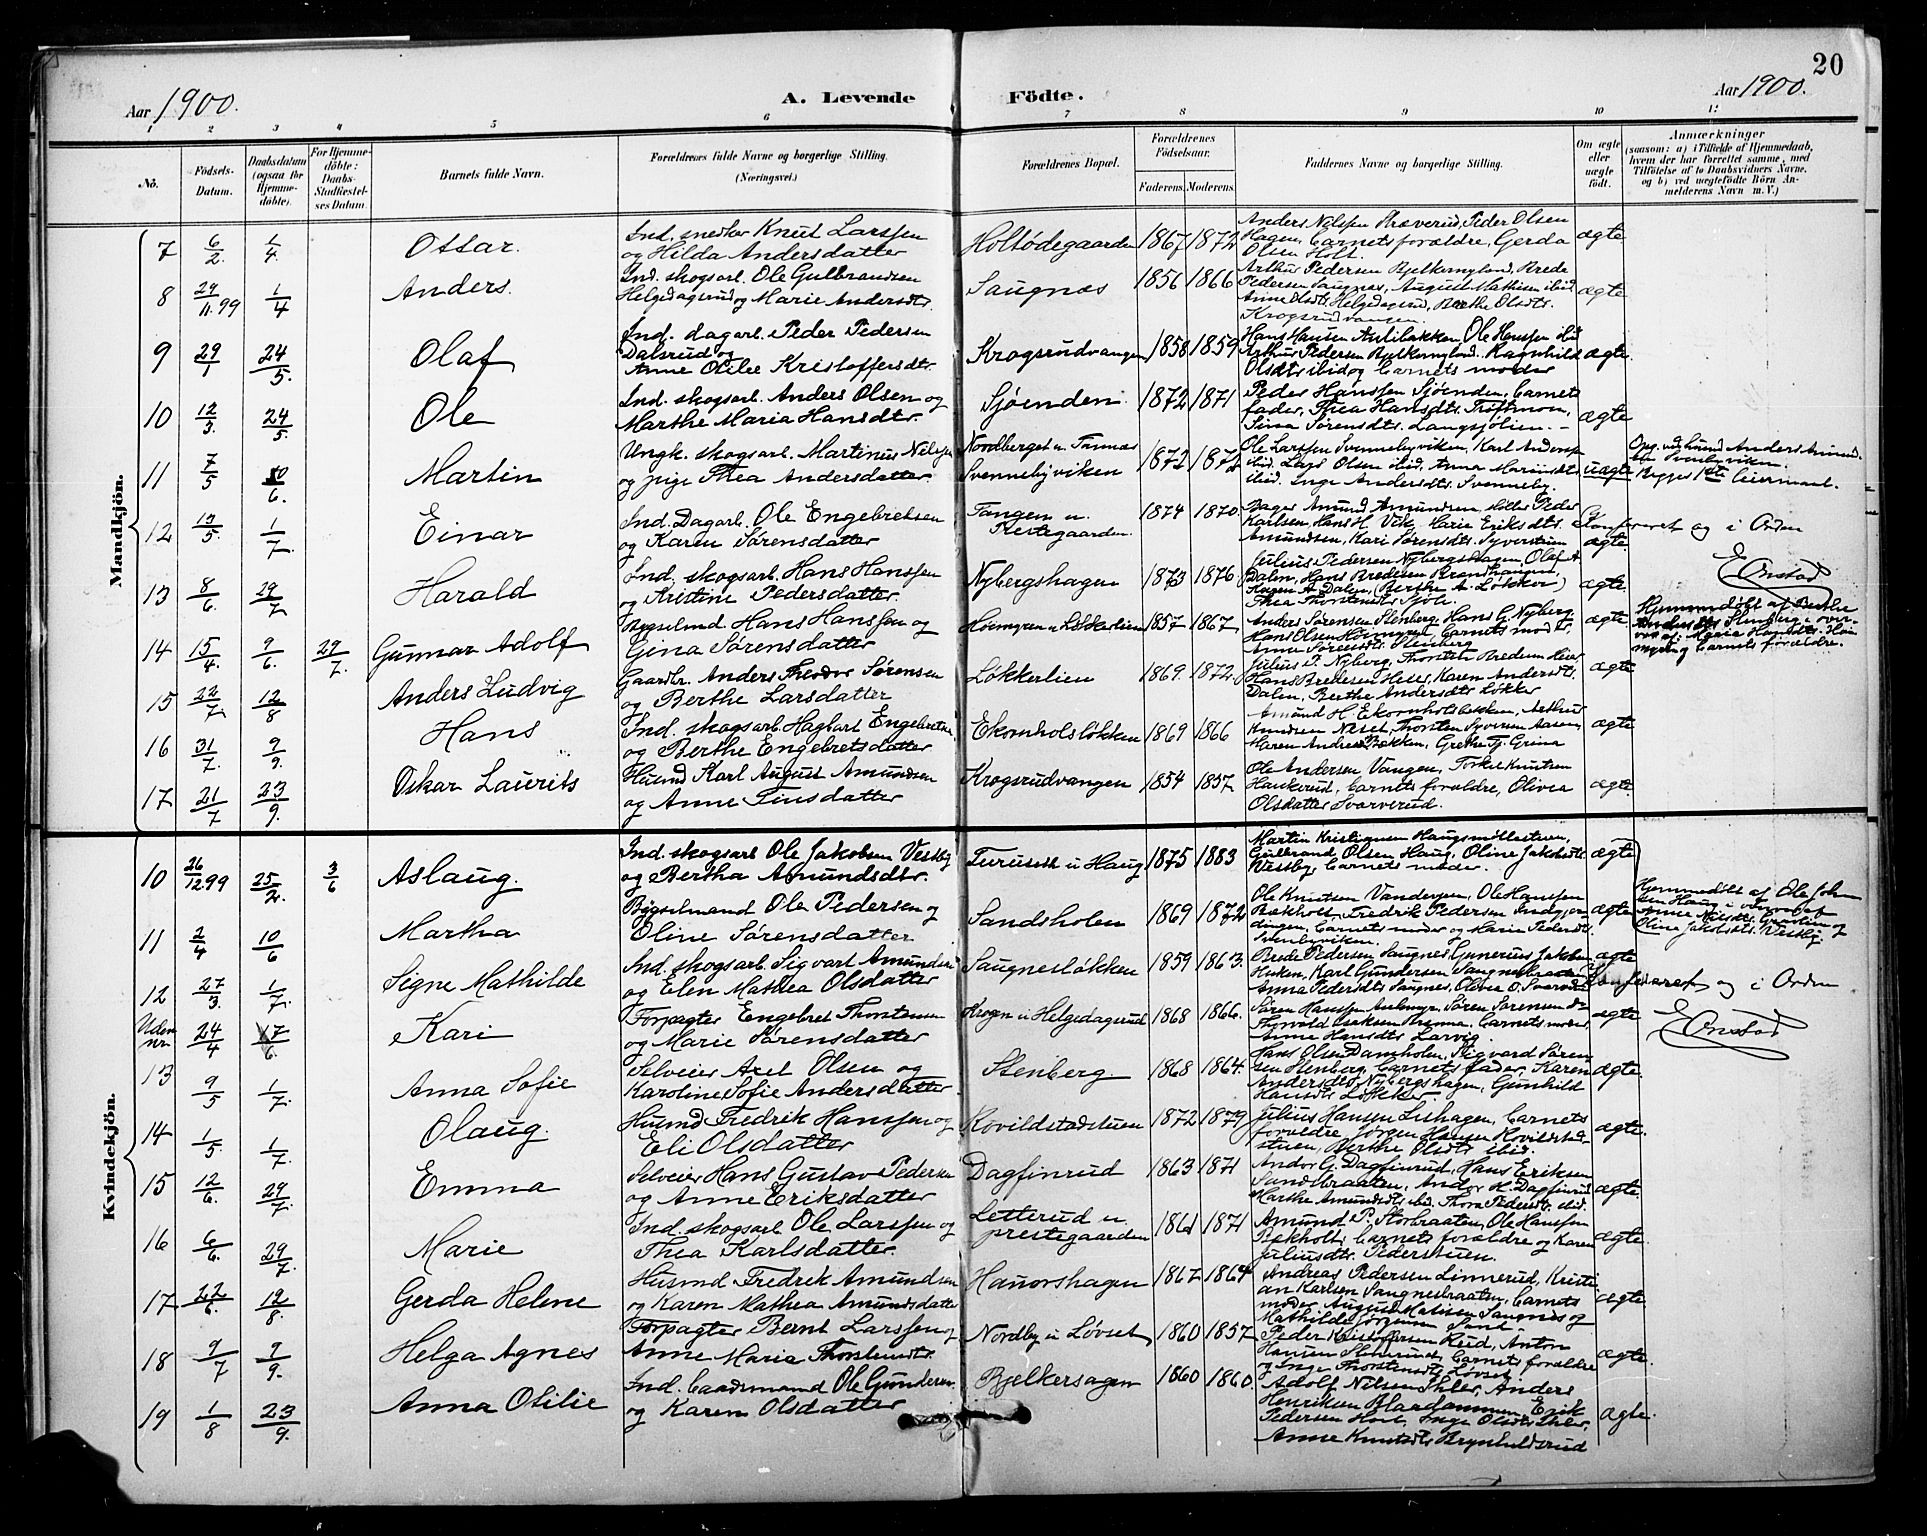 20
Aar 1900. A. Levende Födte. Aar 1900.
1 2 3 4 5 6 7 8 9 10 11
No. Födsels-Datum. Daabsdatum (ogsaa for Hjemme-döbte). For Hjemme-döbte: Daabs-Stadfæstel-ses Datum. Barnets fulde Navn. Forældrenes fulde Navne og borgerlige Stilling. (Næringsvei.) Forældrenes Bopæl. Forældrenes Födselsaar. Faderens. Moderens. Faddernes Navne og borgerlige Stilling. Om ægte eller uægte födt. Anmærkninger (saasom: a) i Tilfælde af Hjemmedaab, hvem der har forrettet samme, med Tilföielse af to Daabsvidners Navne, og b) ved uægtefödte Börn An-melderens Navn m. V.)
Mandkjön.
7 6/2. 1/4. Ottar. Ind. snedker Knut Larssen
og Hilda Andersdatter Holtödegaarden 1867 1872 Anders Nilssen Præverud, Peder Olsen
Hagen, Barnets forældre, Gerda
Olsen Holt. ægte
8 29/11.99 1/4 Anders. Ind. skogsarb. Ole Gulbrandsen
Helgedagsrud og Marie Andersdtr. Saugnæs 1856 1866 Arthur Pedersen Bjelkemyland, Brede
Pedersen Saugnæs, August Mathisen ibid
Anne Olsdtr. Helgedagsrud, Berthe Olsdtr.
Krogsrudvangen. ægte
9 29/1 24/5. Olaf Ind. dagarb. Peder Pedersen
Dalsrud og
Anne Otilie Kristoffersdtr. Krogsrudvangen 1858 1859 Hans Hansen Aslibakken, Ole Hanssen ibid
Arthur Pedersen Bjelkemyland. Ragnhild
Olsdtr ibid og Barnets moder ægte.
10 12/3. 24/5. Ole Ind. skogsarb. Anders Olsen og
Marthe Maria Hansdtr. Sjøenden. 1872 1871 Peder Hanssen Sjøenden, Barnets
fader, Thea Hansdtr. Trøftmon,
Sina Sørensdtr. Langsjølien. ægte
11 7/5 10/6. Martin Ungk. skogsarb. Martinus Nilsen
og pige Thea Andersdatter Nordberget u. Finnæs
Svennebyviken 1872 1872 Ole Larssen Svennebyviken, Karl Anderssen
ibid. Lars Olsen ibid, Anna Martinsdtr.
ibid. Inge Andersdtr. Svenneby. uægte Opg. ved husmd Anders Amund-
sen Svenbyviken.
Begges 1ste leiermaal.
12 13/5. 1/7. Einar Ind. Dagarb. Ole Engebretsen
og Karen Sørensdatter Tangen u.
Prestegaarden. 1874 1870. Bager Amund Amundsen Holter, Peder
Karlsen, Hans H. Vik, Marie Eriksdtr.
Amundsen, Kari Sørensdtr. Syverstuen ægte. Confereret og i Orden
13 8/6. 29/7. Harald Ind. skogsarb. Hans Hanssen
og Kristine Pedersdatter. Nybergshagen 1873 1876 Julius Pedersen Nybergshagen, Olaf A
Dalen, Hans Bredesen Brandhammer
Hagen A. Dalen, (Berthe A. Løkker)
Thea Thorstensdtr Sjøli. ægte. E. Onstad
14 15/4. 9/6. 29/7. Gunnar Adolf Bygselmd Hans Hanssen og
Gina Sørensdatter Hoemyren u Løkkerlien 1857 1867. Anders Sørensen Stenberg, Hans G. Nyberg
Hans Olsen Hoemyren, Barnets moder,
Anne Sørensdtr. Stenberg ægte Hjemmedøbt af Berthe
Andersdtr Stenberg i over-
vær af: Maria Hansdtr. Hoe-
myren og Barnets forældre.
15 22/7. 12/8 Anders Ludvig Gaardbr. Anders Theodor Sørensen
og Berthe Larsdatter Løkkerlien 1869. 1872. Julius P. Nyberg, Thorsten Bredesen Heier
Hans Bredesen Heier, Karen Andersdtr.
Dalen, Berthe Andersdtr Løkker ægte
16 31/7. 9/9. Hans Ind. skogsarb. Hagbart Engebretsen
og Berthe Engebretsdatter Ekornholsløkken 1869 1866 Amund H. Ekornholsbakken, Arthur
Knudsen Næset, Thorsten Syversen Aasen
Maren Anders Bakken, Grethe G. Grina ægte
17 21/7 23/9. Oskar Laurits Husmd Karl August Amundsen
og Anne Finsdatter Krogsrudvangen 1854 1857. Ole Andersen Vangen, Torkel Knutsen
Haukerud, Barnets forældre, Olivia
Olsdatter Svarverud. ægte.
Kvindekjön.
10 26/12 99 25/2. 3/6 Aslaug. Ind. skogsarb Ole Jakobsen Vestby
og Bertha Amundsdtr. Furuseth u Haug 1875 1883 Martin Kristiansen Haugsmøllestuen,
Gulbrand Olsen Haug, Oline Jakobsdtr
Vestby, Barnets moder. ægte Hjemmedøbt af Ole Joh-
sen Haug i overværet
Anne Nilsdtr. Graslien og
Oline Jakobsdtr. Vestby.
11 2/4 10/6 Martha Bygselmand Ole Pedersen og
Oline Sørensdatter Sandsholen 1869 1872 Ole Knutsen Vandergen, Ole Hanssen
Bækholt, Fredrik Pedersen Indgjer-
dingen, Barnets moder og Marie Pedersdtr.
Svenbyviken. ægte
12 27/3. 1/7. Signe Mathilde Ind. skogsarb. Sigvart Amundsen
og Elen Mathea Olsdatter Saugnesløkken 1859 1863. Brede Pedersen Saugnes, Gunerius Jakobsen
Huken, Karl Gundersen Saugnesbraaten
Anna Pedersdtr Saugnes, Olivia O. Svarverud ægte Confereret og i Orden
Uden nr. 24/4 17/6. Kari Forpagter Engebret Thorstensen
og Marie Sørensdatter Krogen u Helgedagsrud 1868 1866. Søren Hanssen Aasbmyr, Søren Sørensen do
Thorvald Isaksen Brenna, Barnets moder,
Anne Hansdtr. Larvig. ægte E. Onstad
13 9/5 1/7. Anna Sofie Selveier Axel Olsen og
Karoline Sofie Andersdatter Stenberg. 1868 1864. Hans Olsen Damholen, Sigvard Søren-
sen Stenberg, Barnets fader, Karen
Andersdtr. Nybergshagen, Gunhild
Hansdtr Løkker. ægte.
14 1/5. 1/7. Olaug. Husmd Fredrik Hanssen og
Eli Olsdatter Kovildstadstuen 1872 1879 Julius Hansen Lihagen, Barnets
forældre, Jørgen Hansen Kovildstad-
stuen, Berthe Olsdtr ibid. ægte.
15 12/6. 29/7. Emma Selveier Hans Gustav Pedersen
og Anne Eriksdatter Dagfinrud 1863 1871 Andor G. Dagfinrud, Hans Eriksen
Sandbraaten, Andor H. Dagfinrud
Marthe Amundsdtr ibid. Thora Pedersdtr. ibid. ægte.
16 6/6 29/7. Marie Ind. skogsarb Ole Larssen og
Thea Karlsdatter. Letterud u.
prestegaarden 1861 1871 Amund P. Storbraaten, Ole Hanssen
Bækholt, Barnets forældre og Karen
Juliusdtr. Pederstuen. ægte.
17 22/6. 12/8. Gerda Helene Husmd Fredrik Amundsen
og Karen Mathea Amundsdatter Hauorshagen 1867 1864 Andreas Pedersen Linnerud, Kristi-
an Karlsen Saugnesbraaten, Barnets
moder, August Matisen Saugnes og
Mathilde Jørgensen Sand. ægte
18 9/7 9/9. Helga Agnes Forpagter Bernt Larssen og
Anne Maria Thorstensdtr. Nordby u Løvset 1860 1857 Peder Kristoffersen Rud, Anton
Hansen Stenerud, Barnets forældre
og Inge Thorstensdtr Løvset ægte.
19 1/8 23/9. Anna Otilie Ind. baadsmand Ole Gundersen
og Karen Olsdatter Bjelkersagen 1860 1860. Adolf Nilsen Ihler, Anders
Henriksen Blaadammen, Erik
Pedersen Holt, Inge Olsdtr Ihler,
Anne Knutsdtr Brynhildsrud ægte.